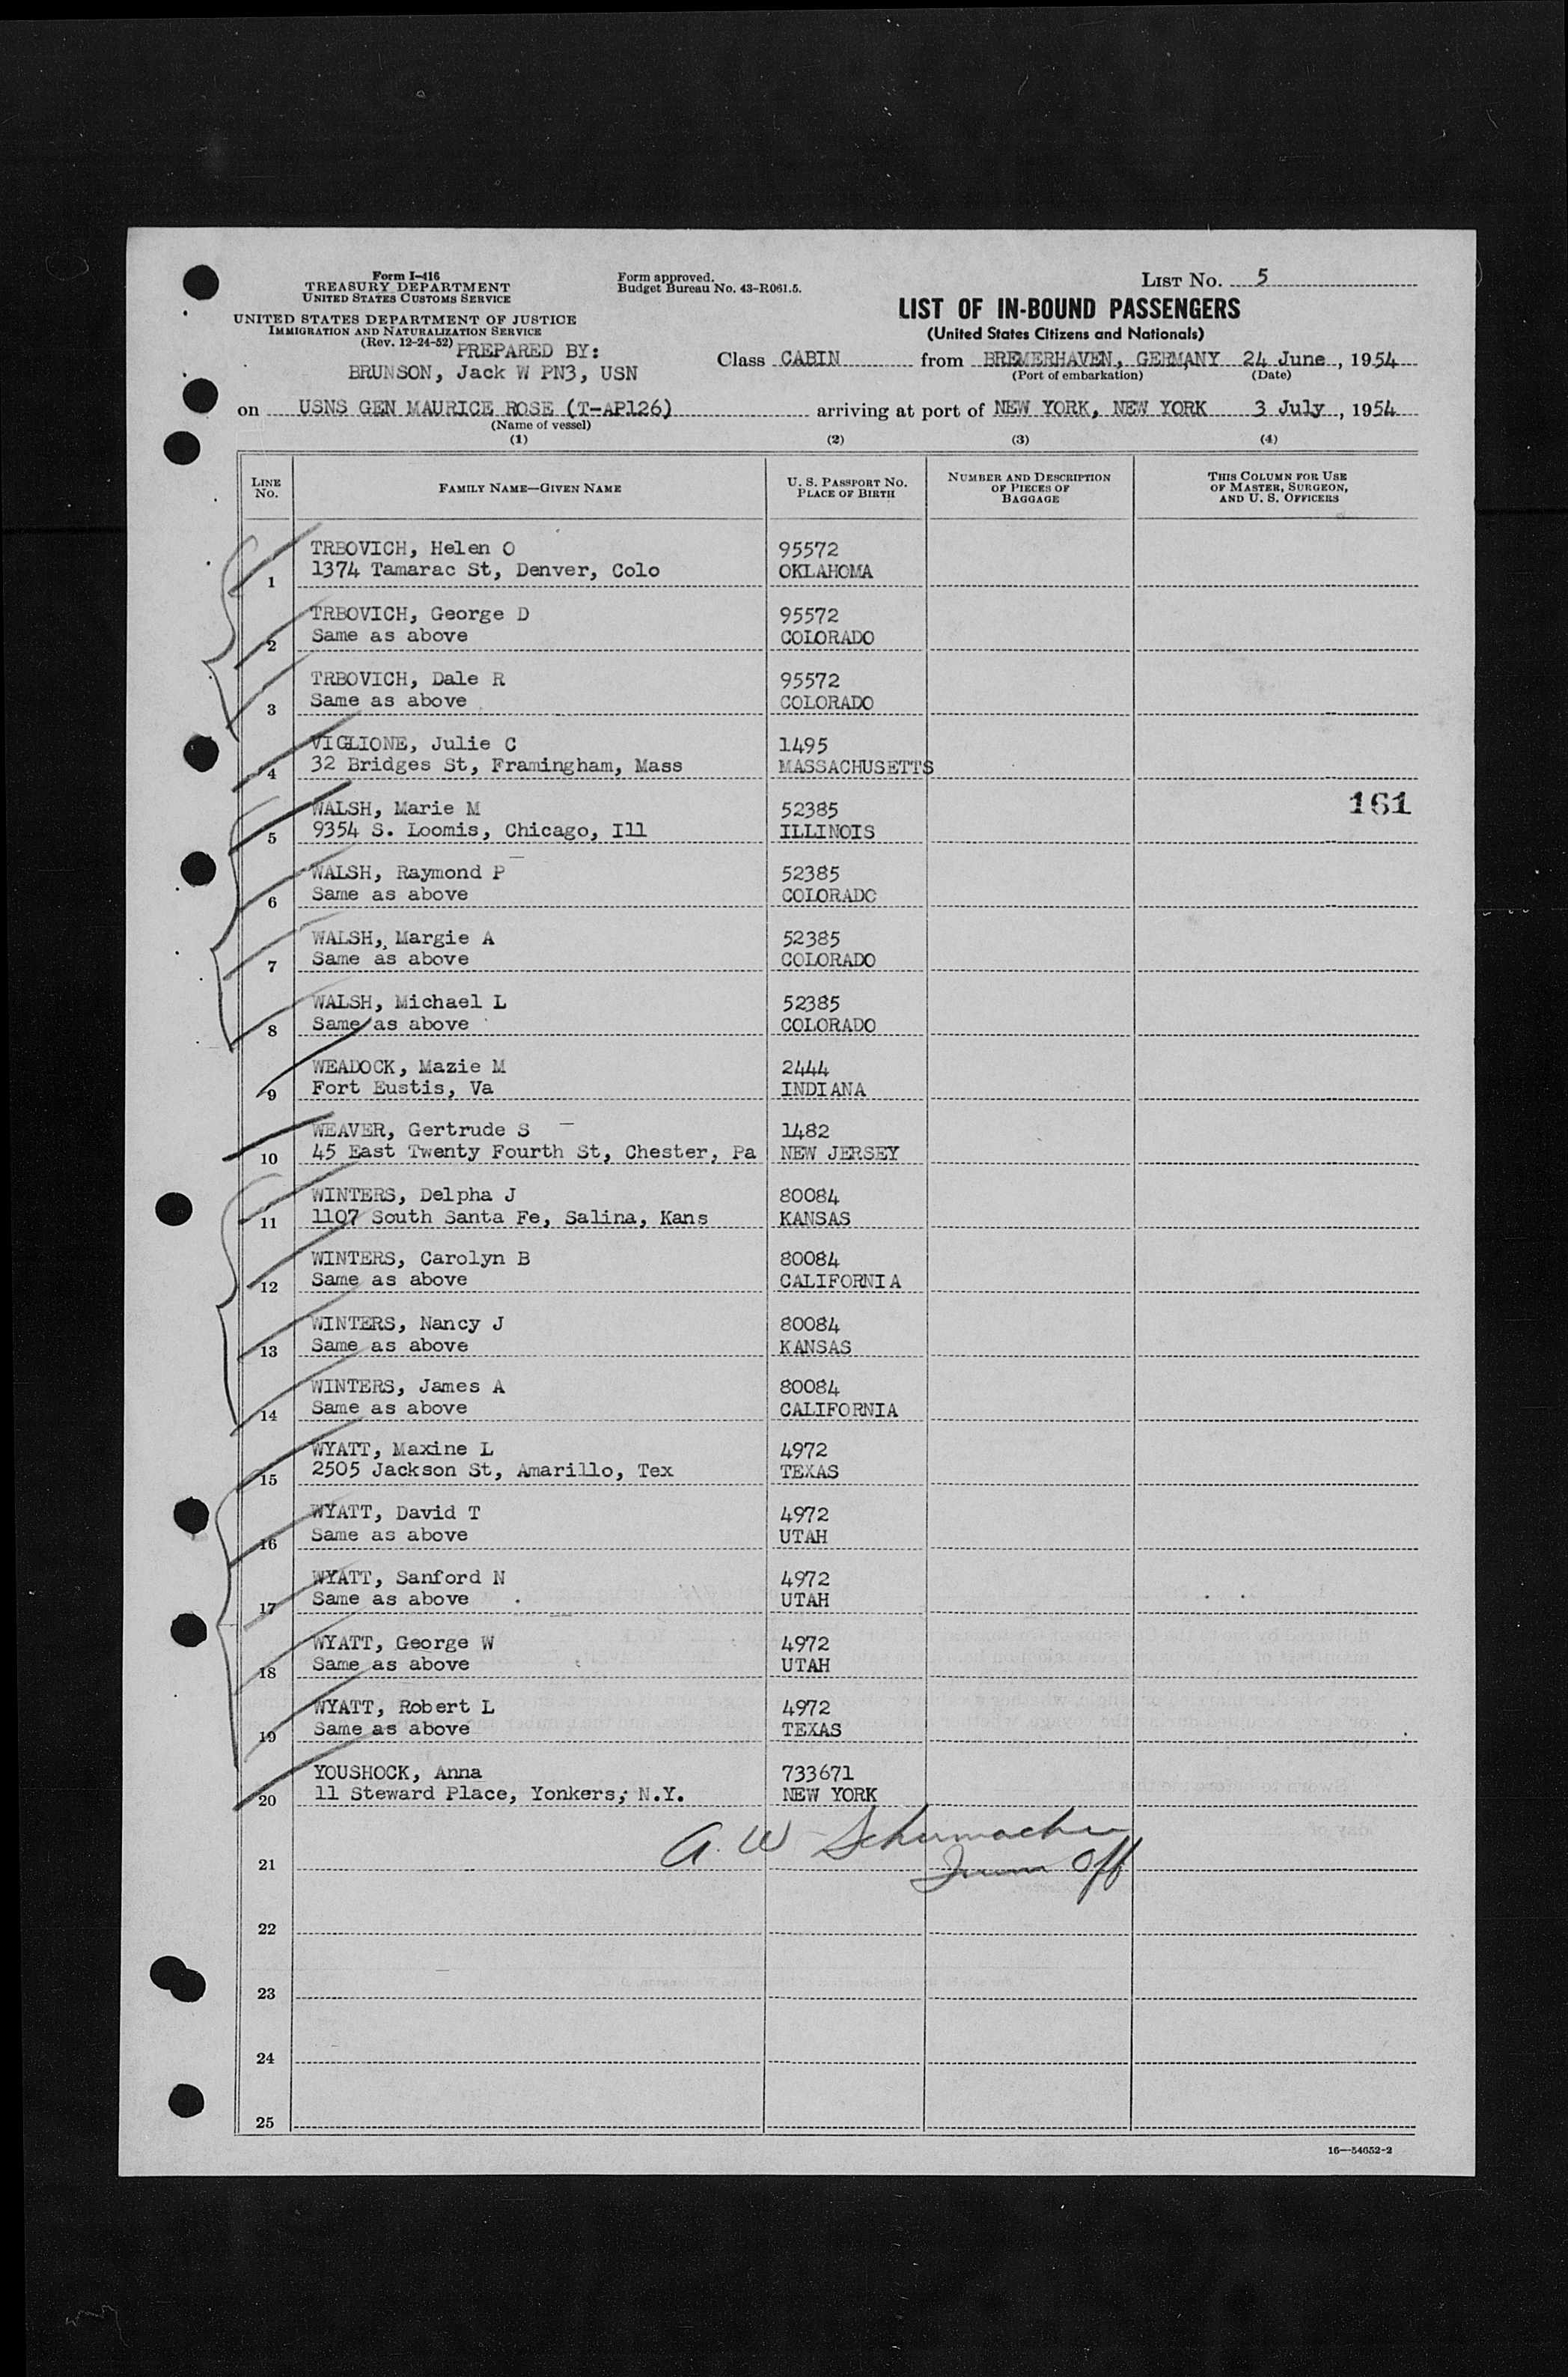 Form I-416
TREASURY DEPARTMENT
UNITED STATES CUSTOMS SERVICE
UNITED STATES DEPARTMENT OF JUSTICE
IMMIGRATION AND NATURALIZATION SERVICE
(Rev. 12-24-52) PREPARED BY:
BRUNSON, Jack W PN3, USN
Form approved.
Budget Bureau No. 43-R061.5.
LIST No. 5
LIST OF IN-BOUND PASSENGERS
(United States Citizens and Nationals)
Class CABIN from BREMERHAVEN, GERMANY 24 June, 1954
(Port of embarkation) (Date)
on USNS GEN MAURICE ROSE (T-AP126) arriving at port of NEW YORK, NEW YORK 3 July, 1954
(Name of vessel)
(1) (2) (3) (4)
LINE No. FAMILY NAME—GIVEN NAME U. S. PASSPORT No. PLACE OF BIRTH NUMBER AND DESCRIPTION OF PIECES OF BAGGAGE THIS COLUMN FOR USE OF MASTER, SURGEON, AND U. S. OFFICERS
TRBOVICH, Helen O 95572
1 1374 Tamarac St, Denver, Colo OKLAHOMA
TRBOVICH, George D 95572
2 Same as above COLORADO
TRBOVICH, Dale R 95572
3 Same as above COLORADO
VIGLIONE, Julie C 1495
4 32 Bridges St, Framingham, Mass MASSACHUSETTS
WALSH, Marie M 52385 161
5 9354 S. Loomis, Chicago, Ill ILLINOIS
WALSH, Raymond P 52385
6 Same as above COLORADO
WALSH, Margie A 52385
7 Same as above COLORADO
WALSH, Michael L 52385
8 Same as above COLORADO
WEADOCK, Mazie M 2444
9 Fort Eustis, Va INDIANA
WEAVER, Gertrude S 1482
10 45 East Twenty Fourth St, Chester, Pa NEW JERSEY
WINTERS, Delpha J 80084
11 1107 South Santa Fe, Salina, Kans KANSAS
WINTERS, Carolyn B 80084
12 Same as above CALIFORNIA
WINTERS, Nancy J 80084
13 Same as above KANSAS
WINTERS, James A 80084
14 Same as above CALIFORNIA
WYATT, Maxine L 4972
15 2505 Jackson St, Amarillo, Tex TEXAS
WYATT, David T 4972
16 Same as above UTAH
WYATT, Sanford N 4972
17 Same as above UTAH
WYATT, George W 4972
18 Same as above UTAH
WYATT, Robert L 4972
19 Same as above TEXAS
YOUSHOCK, Anna 733671
20 11 Steward Place, Yonkers, N.Y. NEW YORK
A. W Schumacher
21 Imm Off
22
23
24
25
16—54652-2